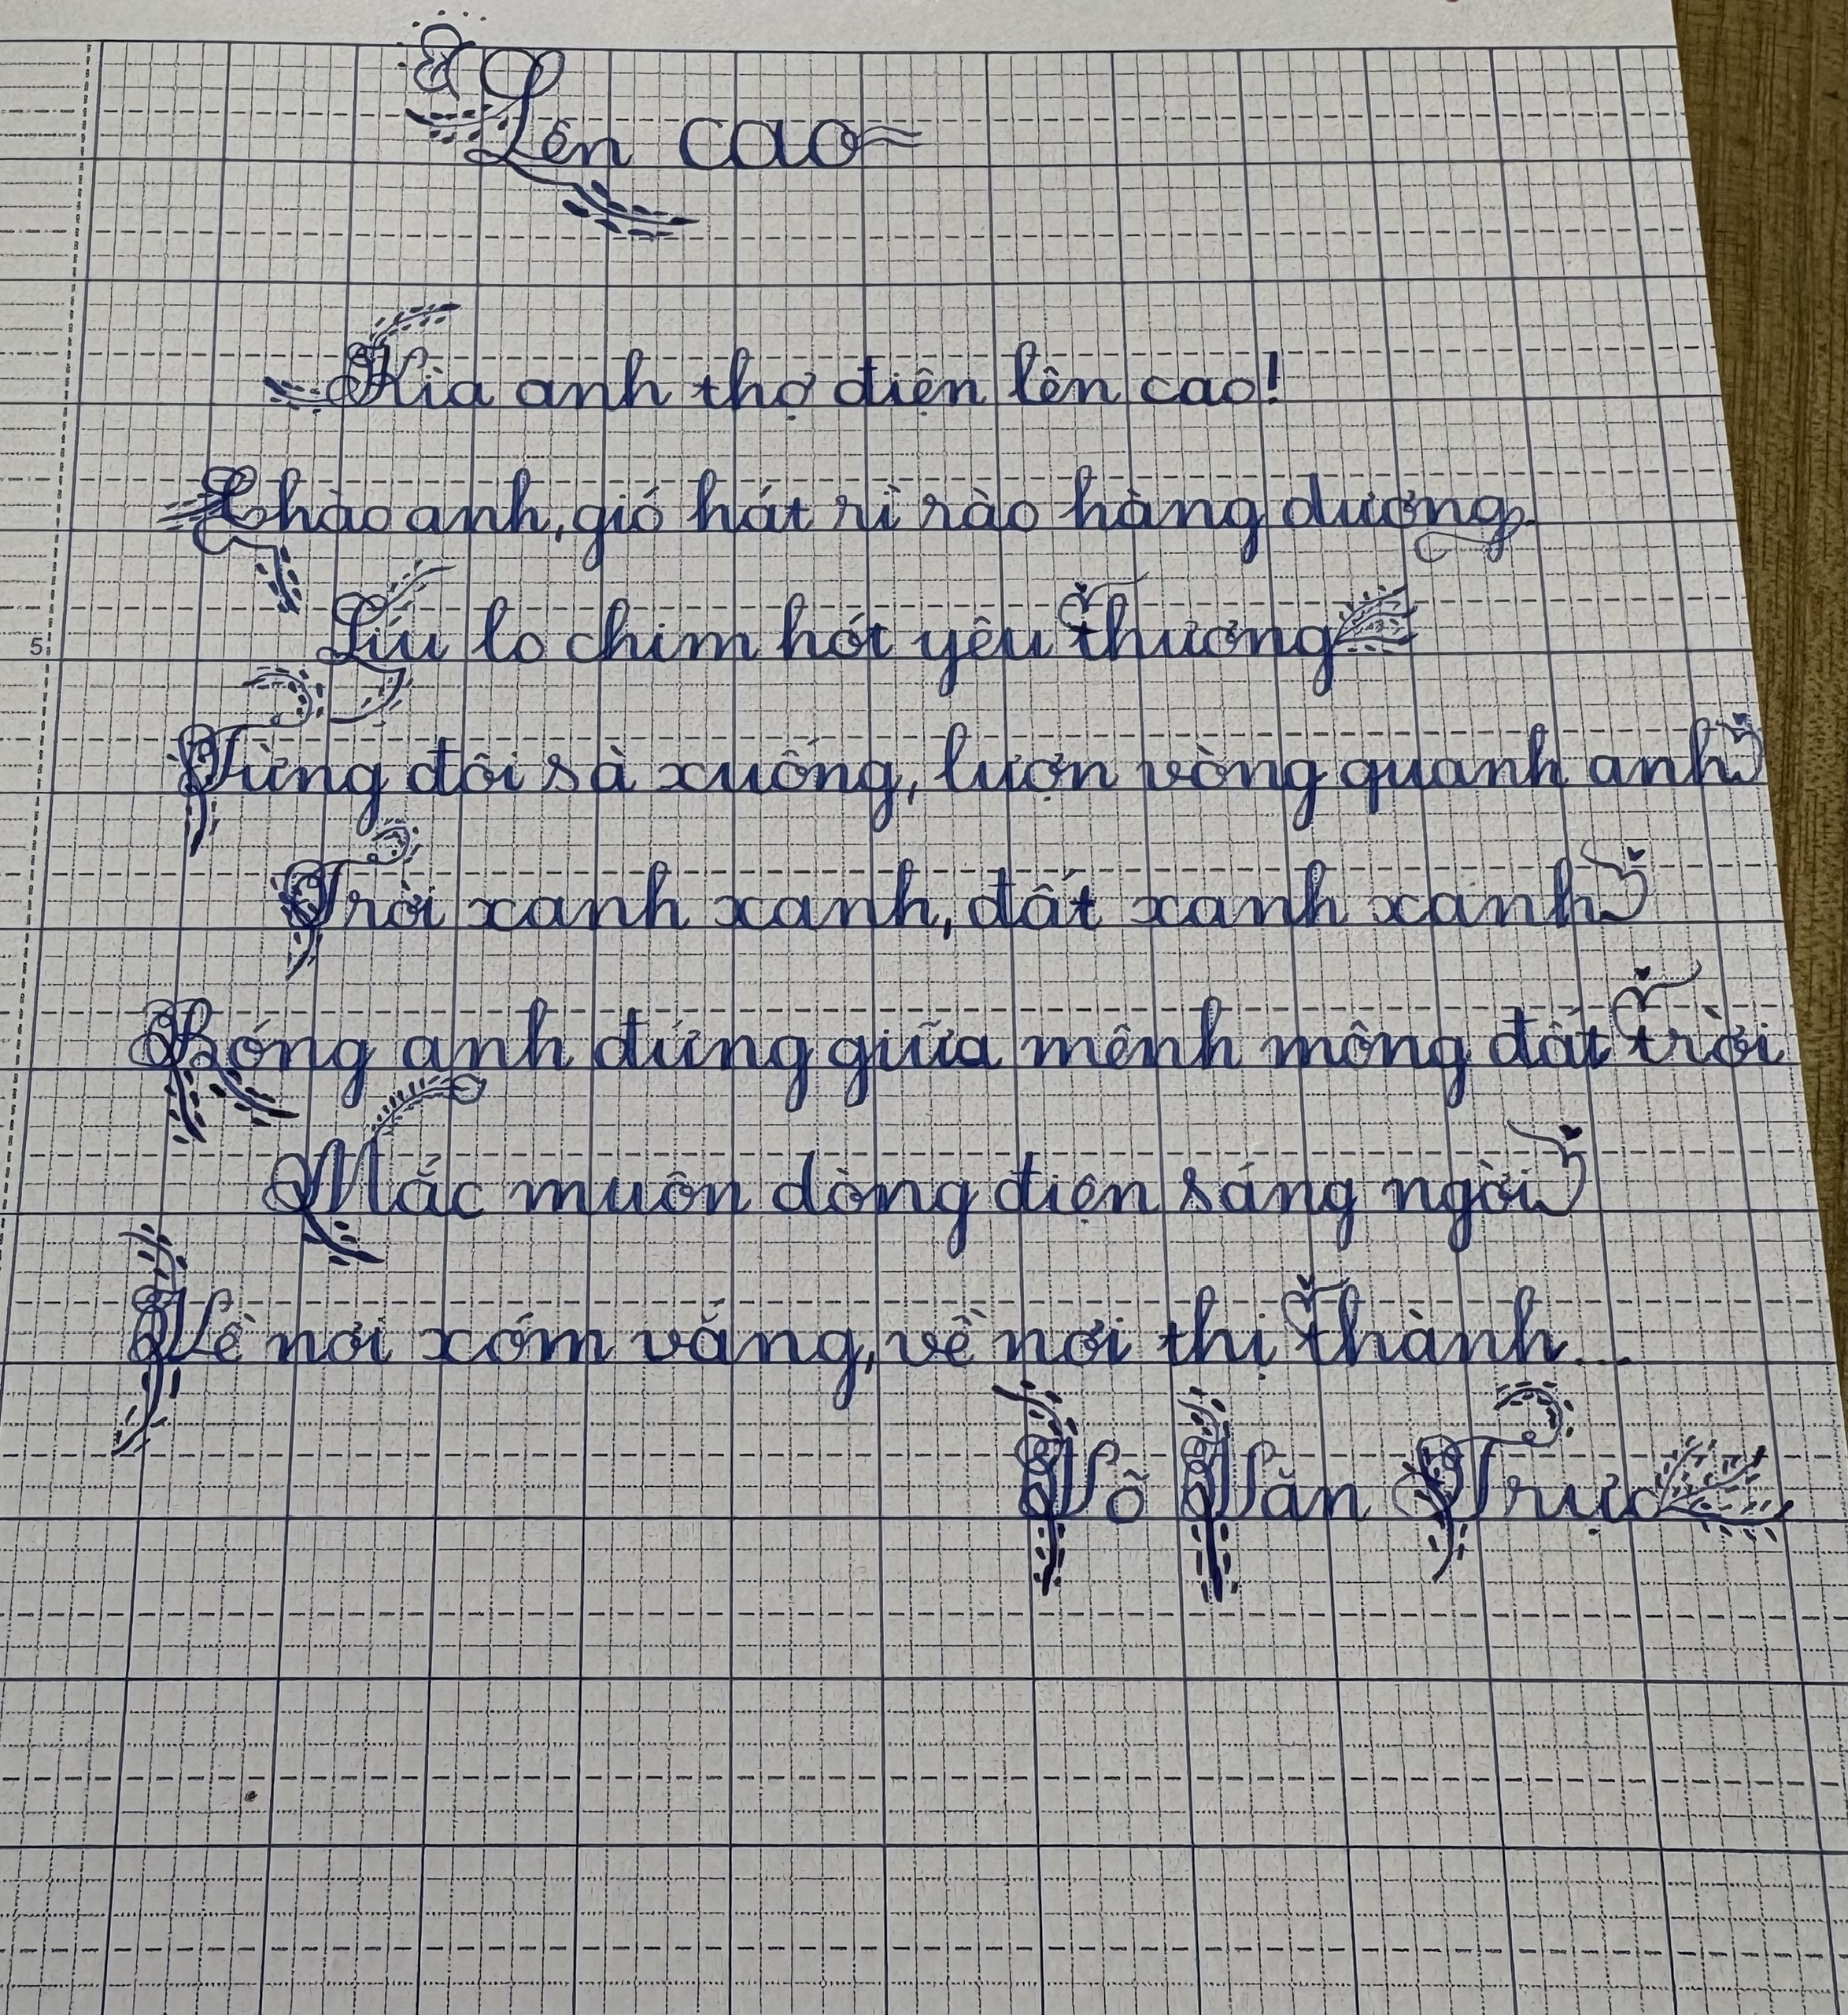 Lên cao
Kìa anh thợ điện lên cao!
Chào anh, gió hát rì rào hàng dương.
Líu lo chim hót yêu thương
Từng đôi sà xuống, lượn vòng quanh anh
Trời xanh xanh, đất xanh xanh
Bóng anh đứng giữa mênh mông đất trời
Mắc muôn dòng điện sáng ngời
Về nơi xóm vắng, về nơi thị thành...
Võ Văn Trực
5